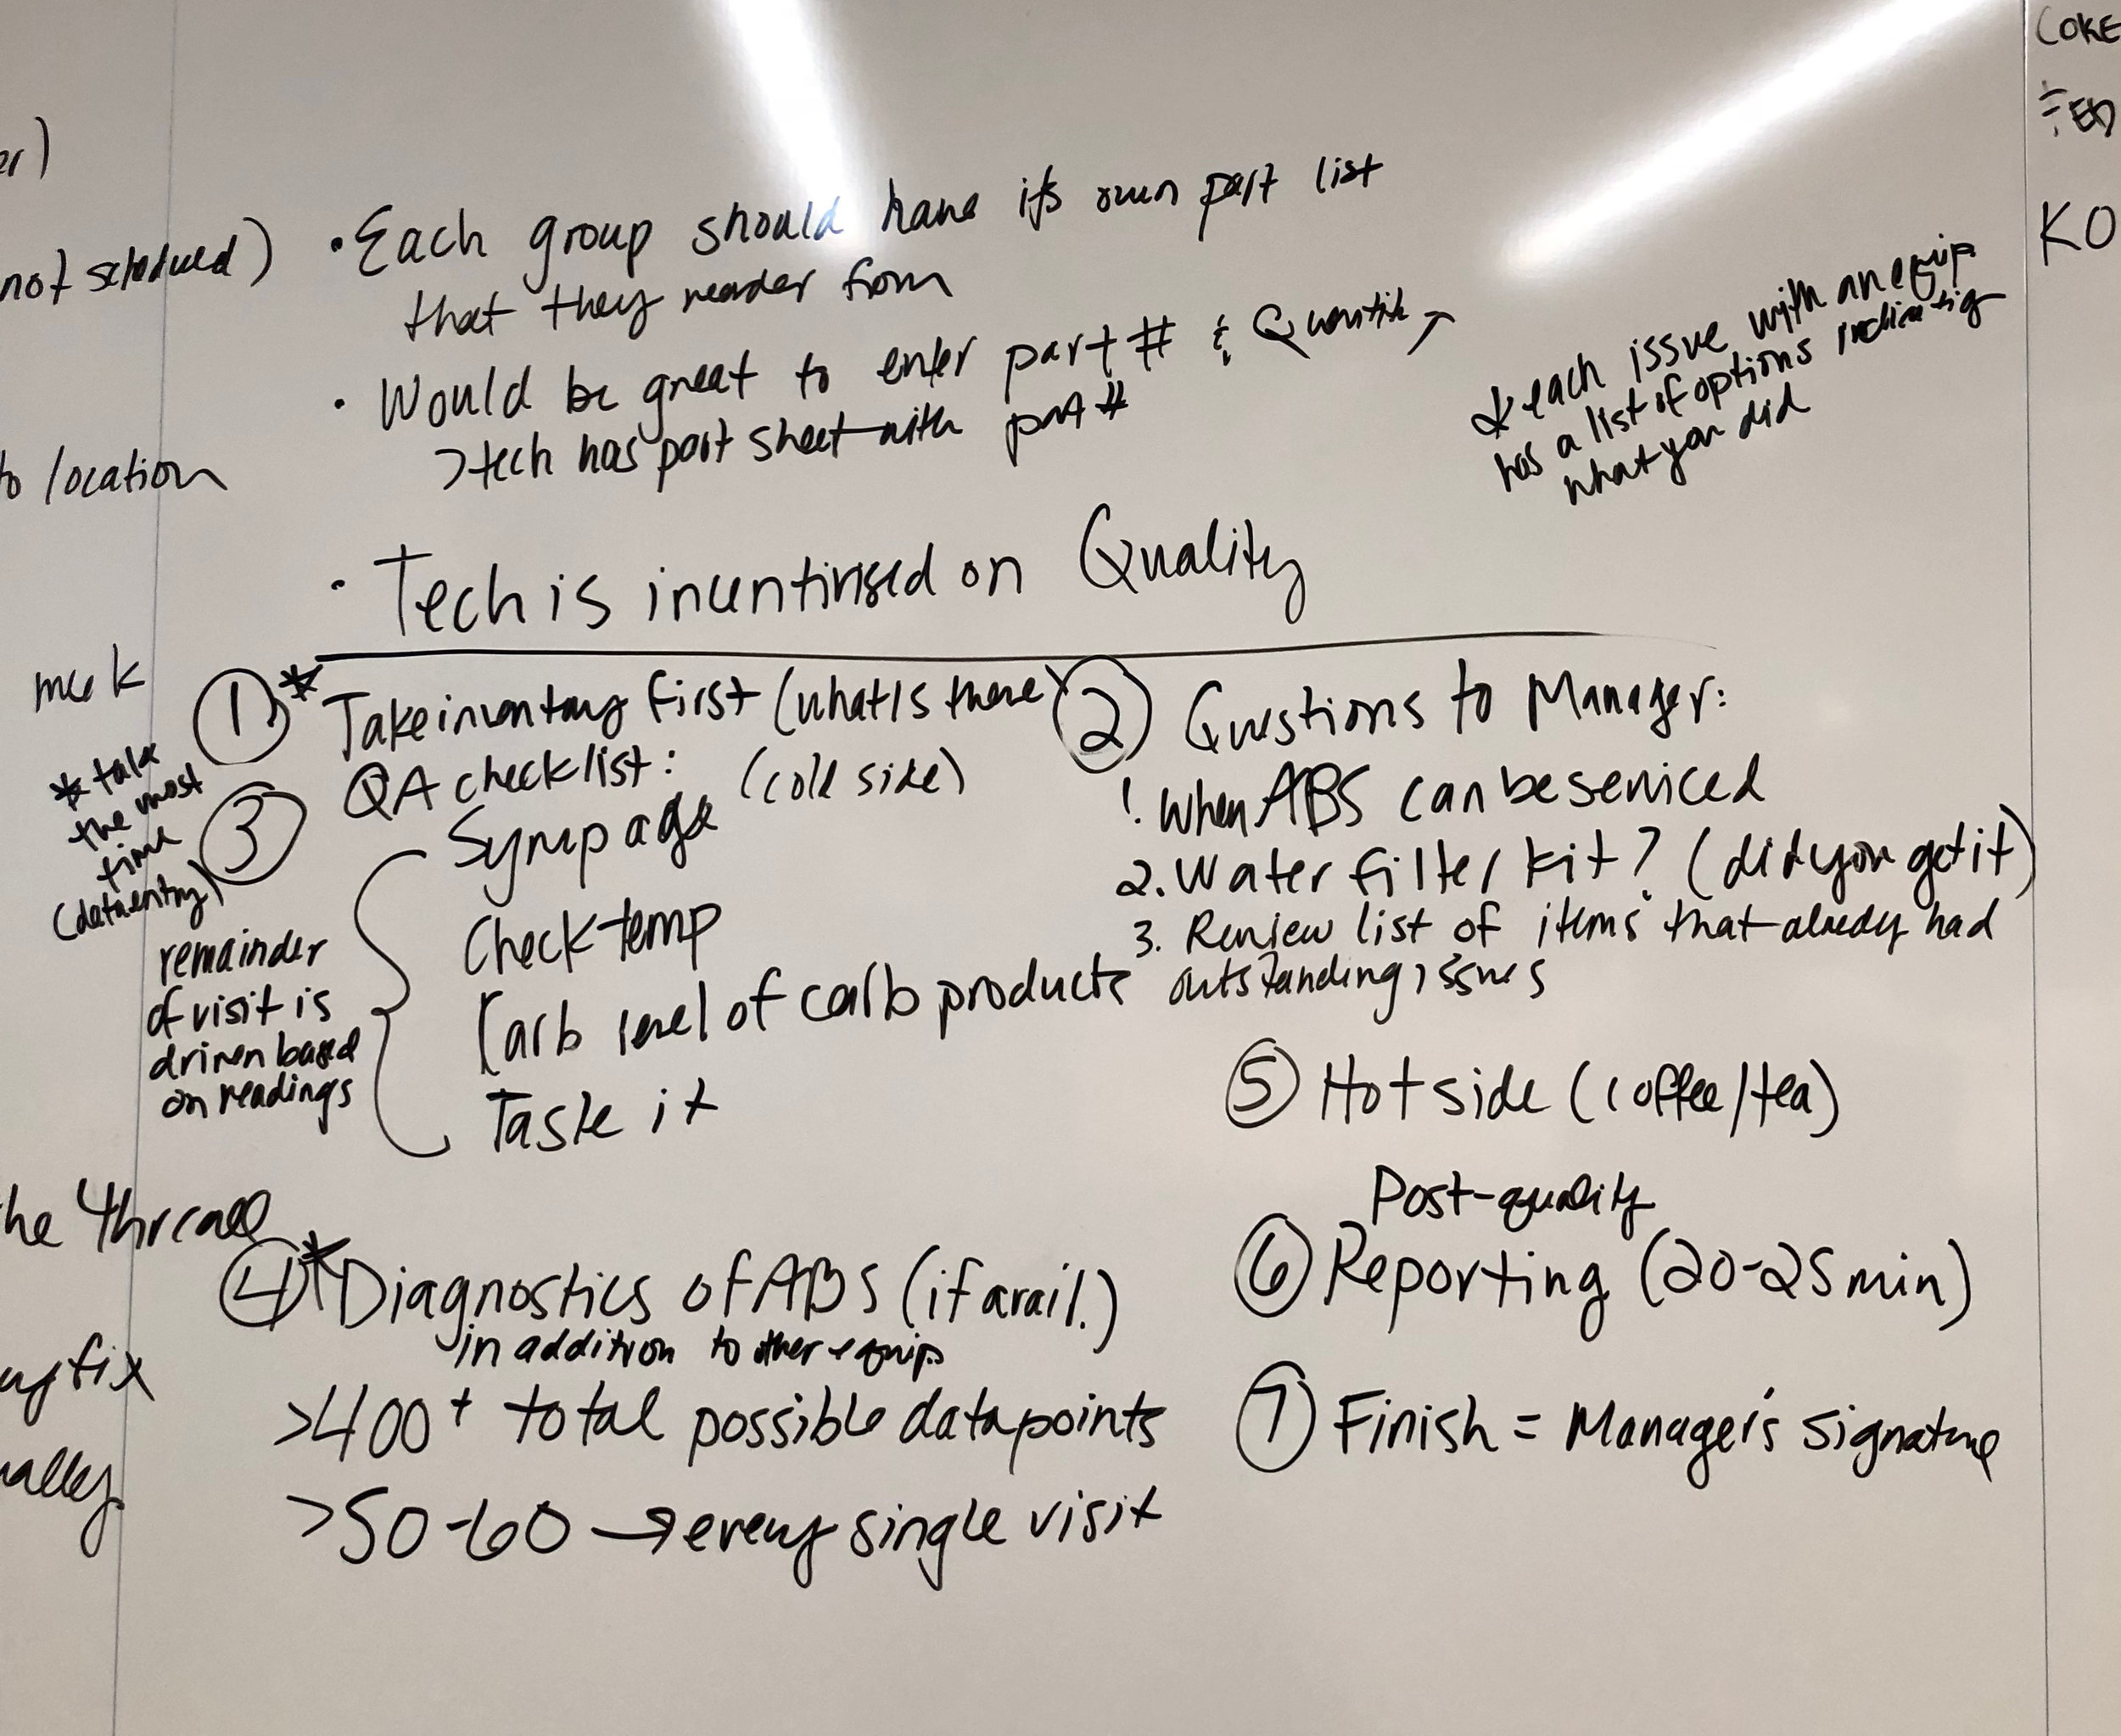 er)
not scheduled)
to location
week
the thread
my fix
ally
• Each group should have it's own part list
that they reorder from
• Would be great to enter part # & Quantity
>tech has part sheet with part #
* each issue with an equip
has a list of options indicating
what you did
• Tech is incentivised on Quality
① * Take inventory first (what is there)
* take
the most
time
(data entry)
③ QA checklist: (cold side)
Syrup age
Check temp
Carb level of carb products
Taste it
remainder
of visit is
driven based
on readings
② Questions to Manager:
1. When ABS can be serviced
2. Water filter kit? (did you get it)
3. Review list of items that already had
outstanding issues
④ * Diagnostics of ABS (if avail.)
in addition to other equip
>400+ total possible datapoints
>50-60 → every single visit
⑤ Hot side (coffee/tea)
Post-quality
⑥ Reporting (20-25 min)
⑦ Finish = Manager's signature
COKE
KO